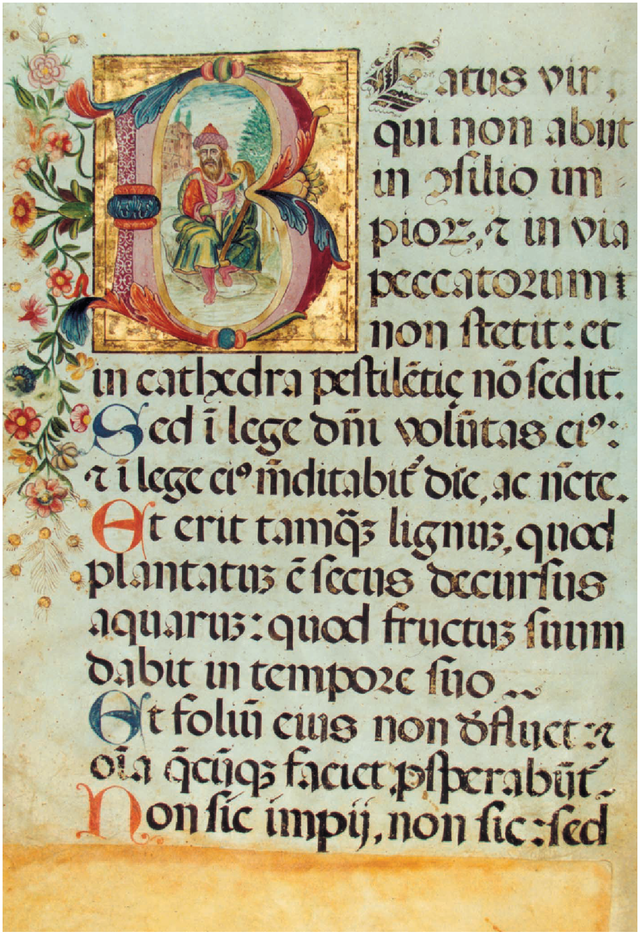 Beatus vir,
qui non abijt
in ꝯsilio im
pioꝝ, ⁊ in via
peccatorum
non stetit: et
in cathedra pestilẽtię nõ sedit.
Sed ĩ lege dñi volũtas eiꝰ:
⁊ ĩ lege eiꝰ m̃ditabit᷑ die, ac ñcte.
Et erit tamq̃ȝ lignuȝ, quod
plantatuȝ ẽ secus decursus
aquaruȝ: quod fructuȝ suum
dabit in tempore suo
Et foliũ eius non d̃fluet: ⁊
oĩa q̃cũqȝ faciet ꝓsperabũt᷑.
Non sic impij, non sic: sed